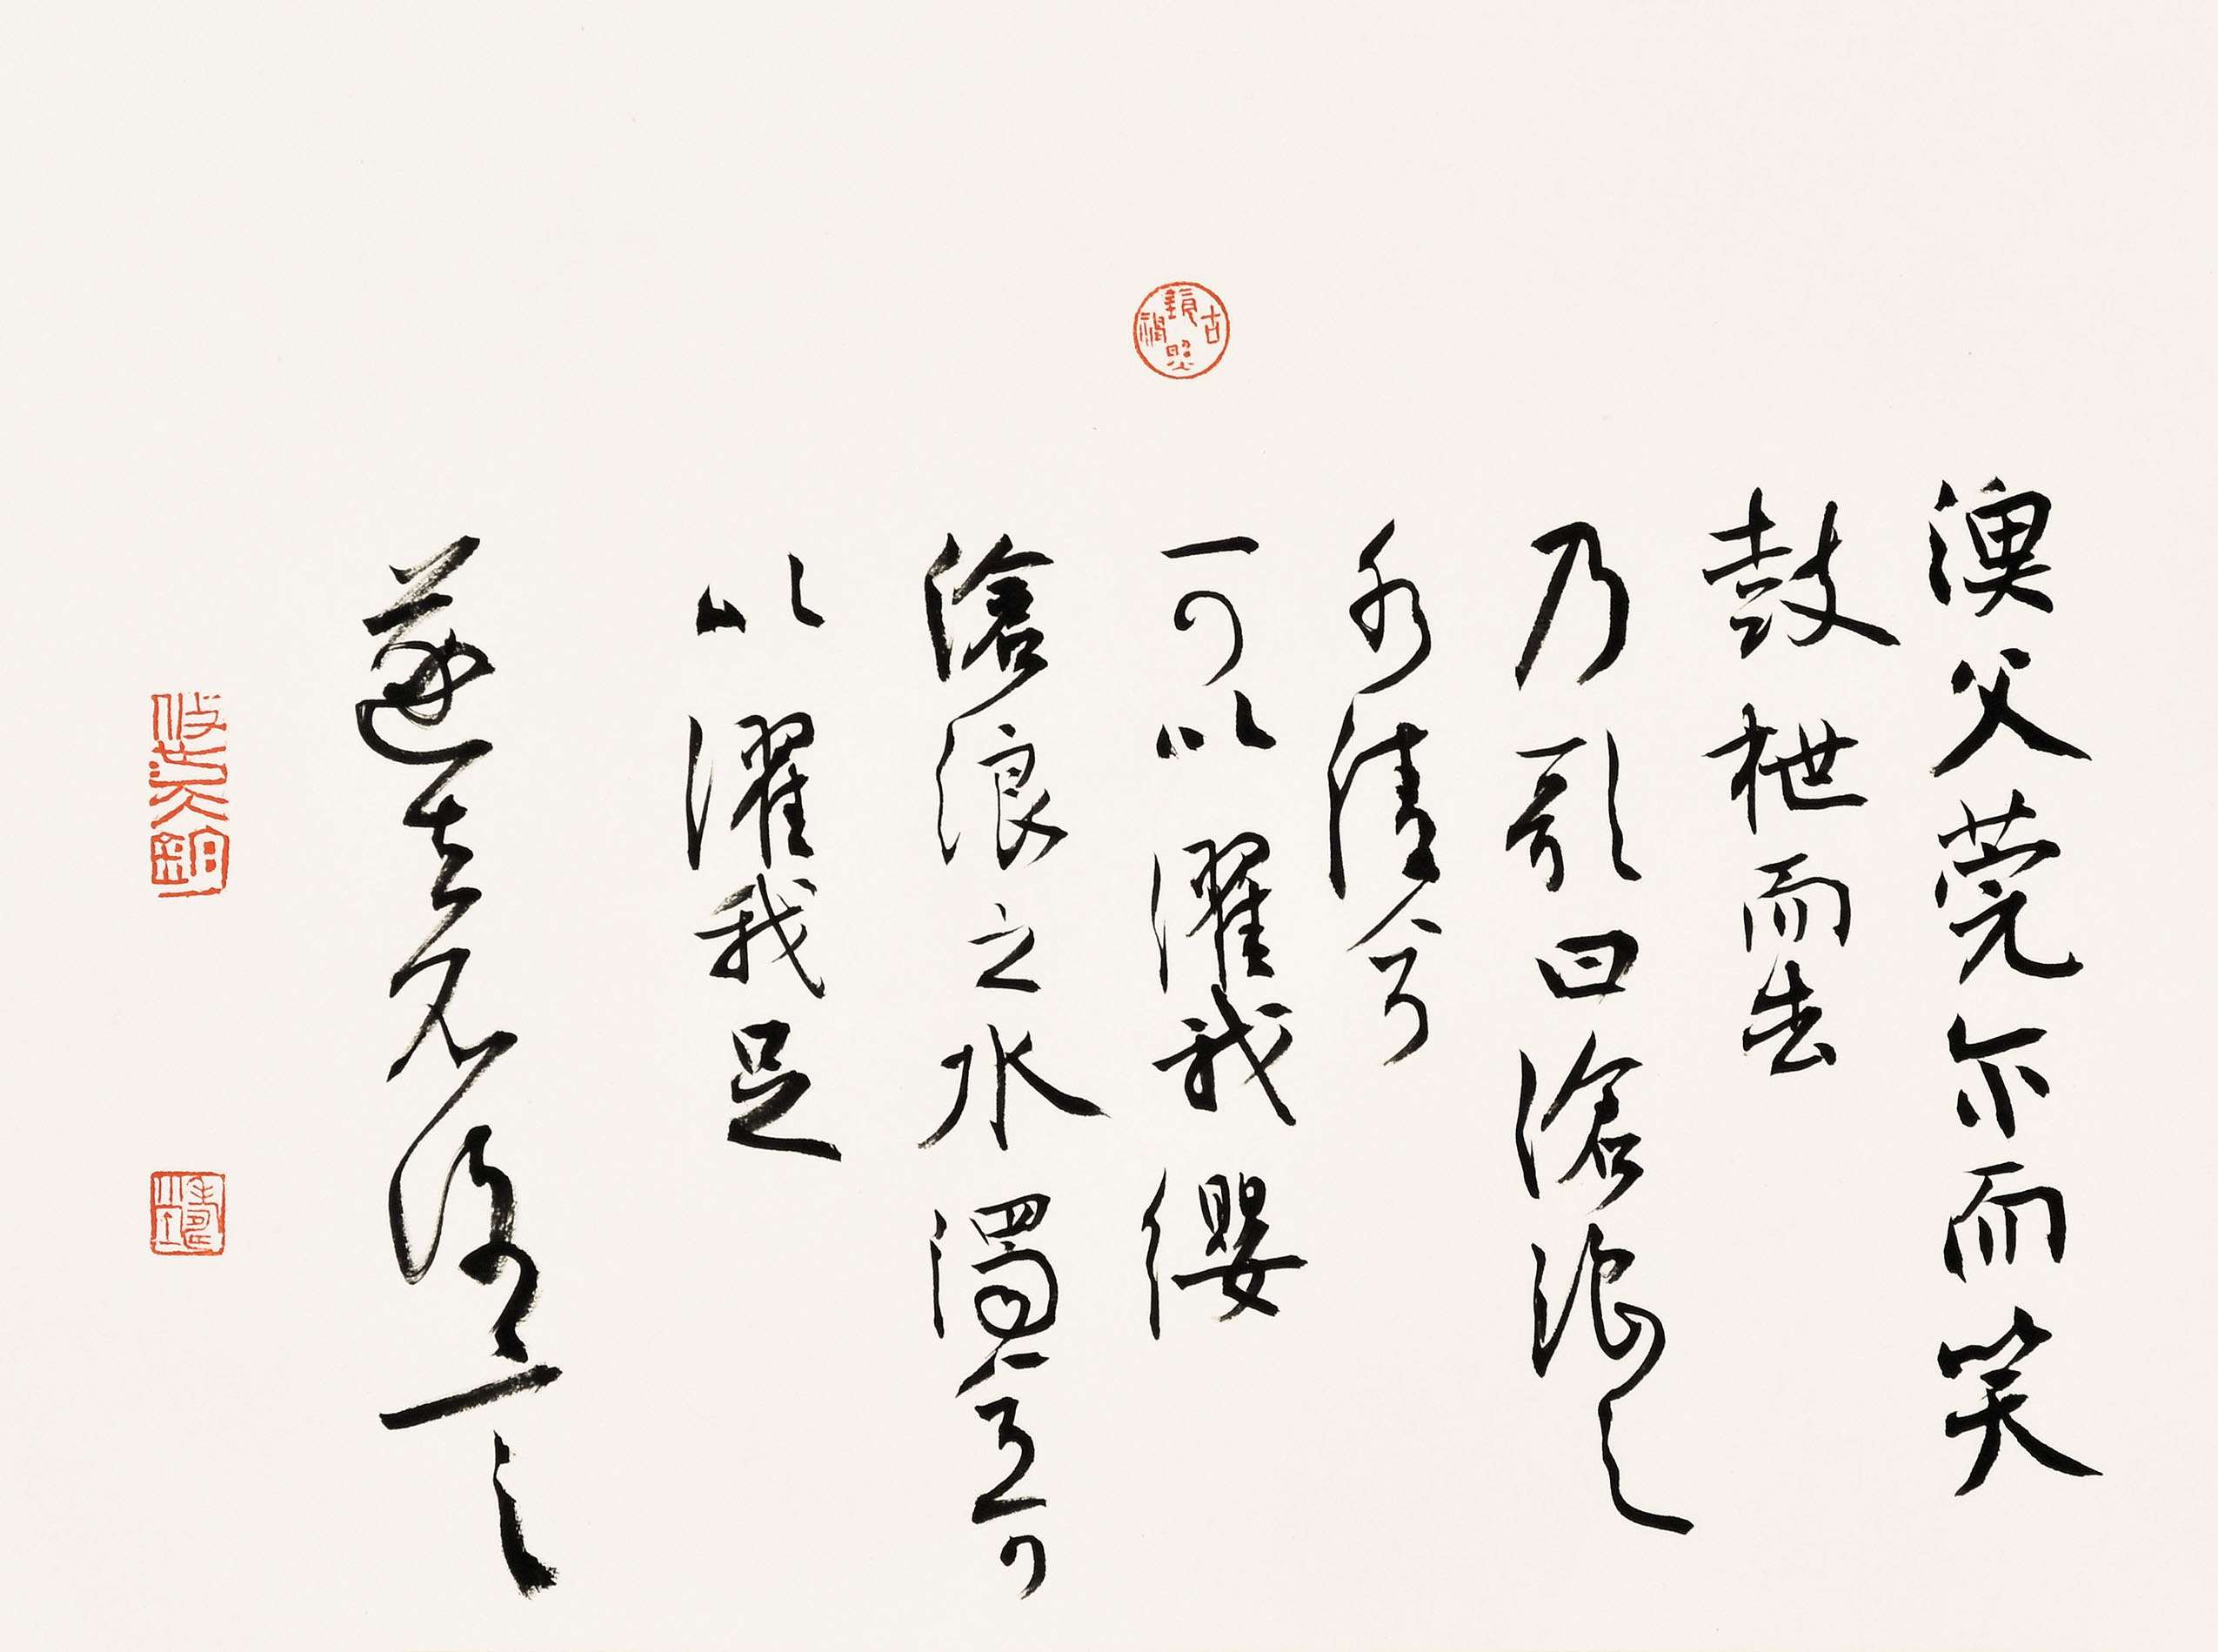 漁父莞尔而笑
鼓枻而去
乃歌曰滄浪之
水清兮
可以濯我纓
滄浪之水濁兮可
以濯我足
遂去不復与言
古鏡照神